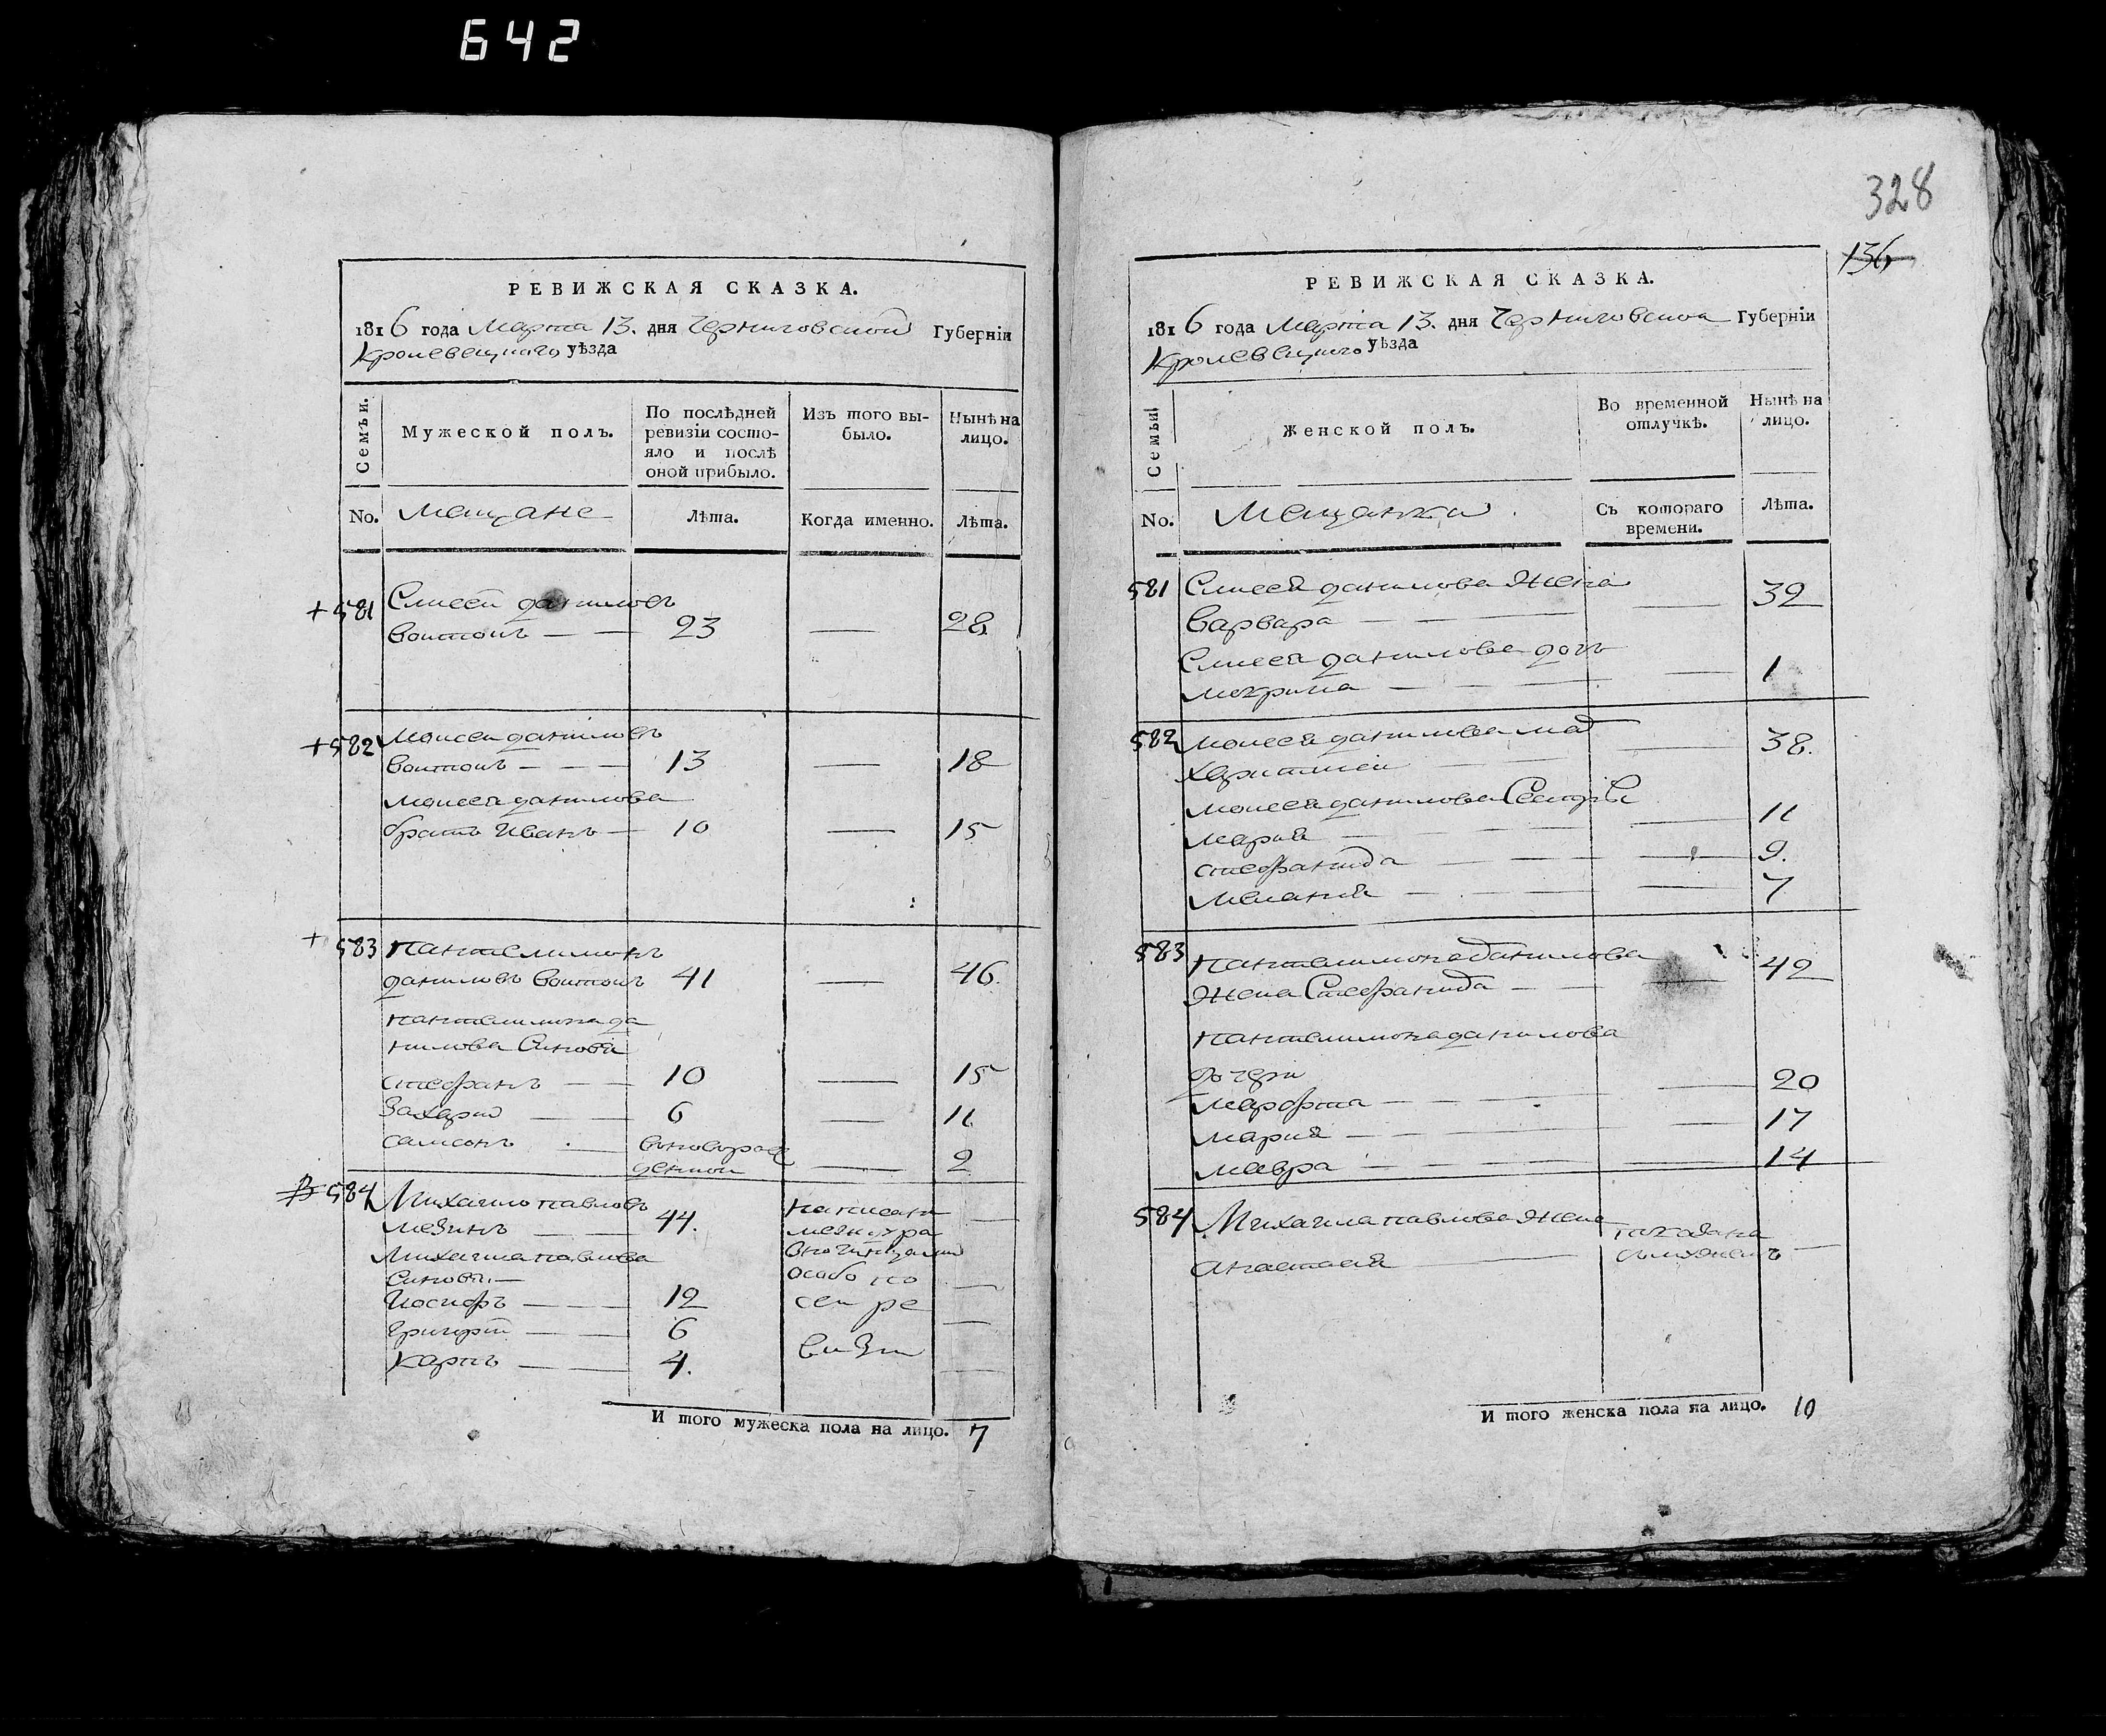 642
РЕВИЖСКАЯ СКАЗКА.
1816 года Марта 13. дня Черниговской Губерніи
Кролевецкого уѣзда
Семьи.
Мужеской полъ.
По послѣдней ревизіи состояло и послѣ оной прибыло.
Изъ того выбыло.
Нынѣ на лицо.
No.
мещане
Лѣта.
Когда именно.
Лѣта.
+ 581 Елисей даниловъ
воитокъ — — 23 — 28
+ 582 моисей даниловъ
воитокъ — — — 13 — 18
моисея данилова
братъ Иванъ — 10 — 15
+ 583 пантелимонъ
даниловъ воитокъ 41 — 46.
пантелимона да
нилова Синовя
стефанъ — — 10 — 15
Захарій — 6 — 11
самсонъ — — 2
584 Михайло павловъ
мезинъ — 44. —
Михайла павлова
Синовя. —
Иосифъ — — 12 —
григорій — — 6 —
карпъ — — 4. —
написани
особо по
сей ре
визіи
И того мужеска пола на лицо. 7
328
136
РЕВИЖСКАЯ СКАЗКА.
1816 года Марта 13. дня Черниговской Губерніи
Кролевецкого уѣзда
Семьи
Женской полъ.
Во временной отлучкѣ.
Нынѣ на лицо.
No.
Мещанки
Съ котораго времени.
Лѣта.
581 Елисея данилова Жена
Варвара — — — 32
Елисея данилова дочь
мокрина — — — 1
582 моисея данилова мат
38.
моисея данилова Сестры
мария — — — 11
стефанида — — — 9.
мелания — — — 7
583 пантелимона данилова
Жена Стефанида — — 42
пантелимона данилова
дочери
марфта — — — 20
мария — — — 17
мавра — — — 14
584 Михайла павлова Жена
анастасия — показана
смужемъ —
И того женска пола на лицо. 10